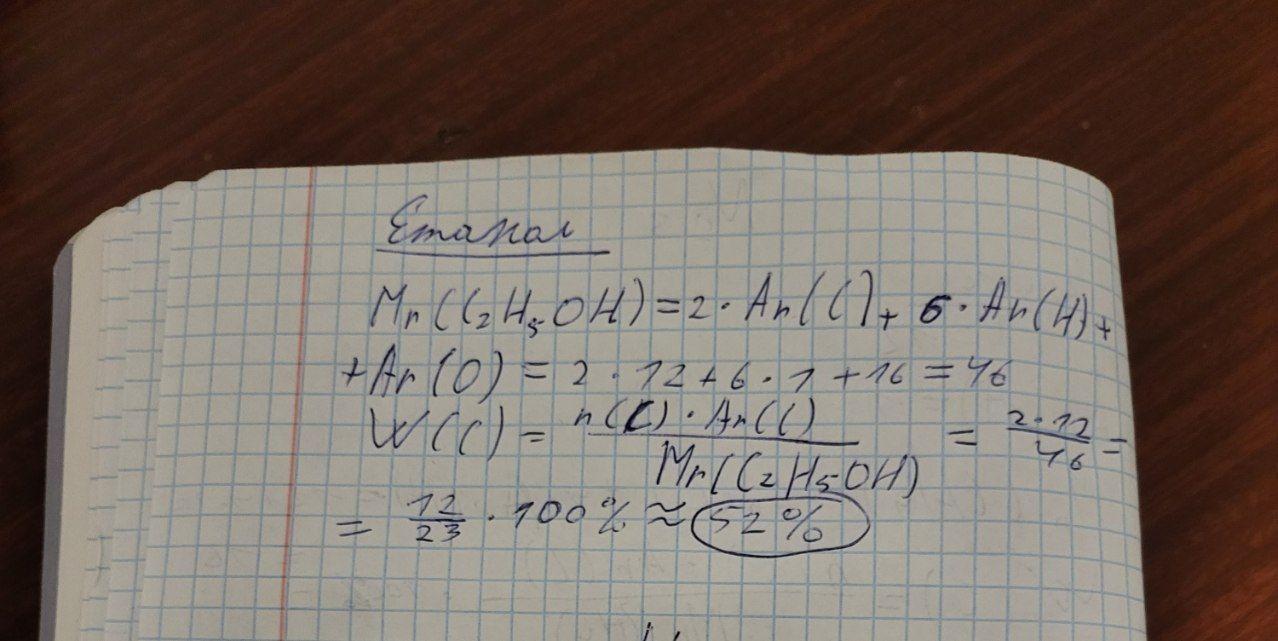 Етанол
Mr(C₂H₅OH) = 2 · Ar(C) + 6 · Ar(H) +
+ Ar(O) = 2 · 12 + 6 · 1 + 16 = 46
W(C) = n(C) · Ar(C) / Mr(C₂H₅OH) = 2·12 / 46 =
= 12/23 · 100% ≈ 52%